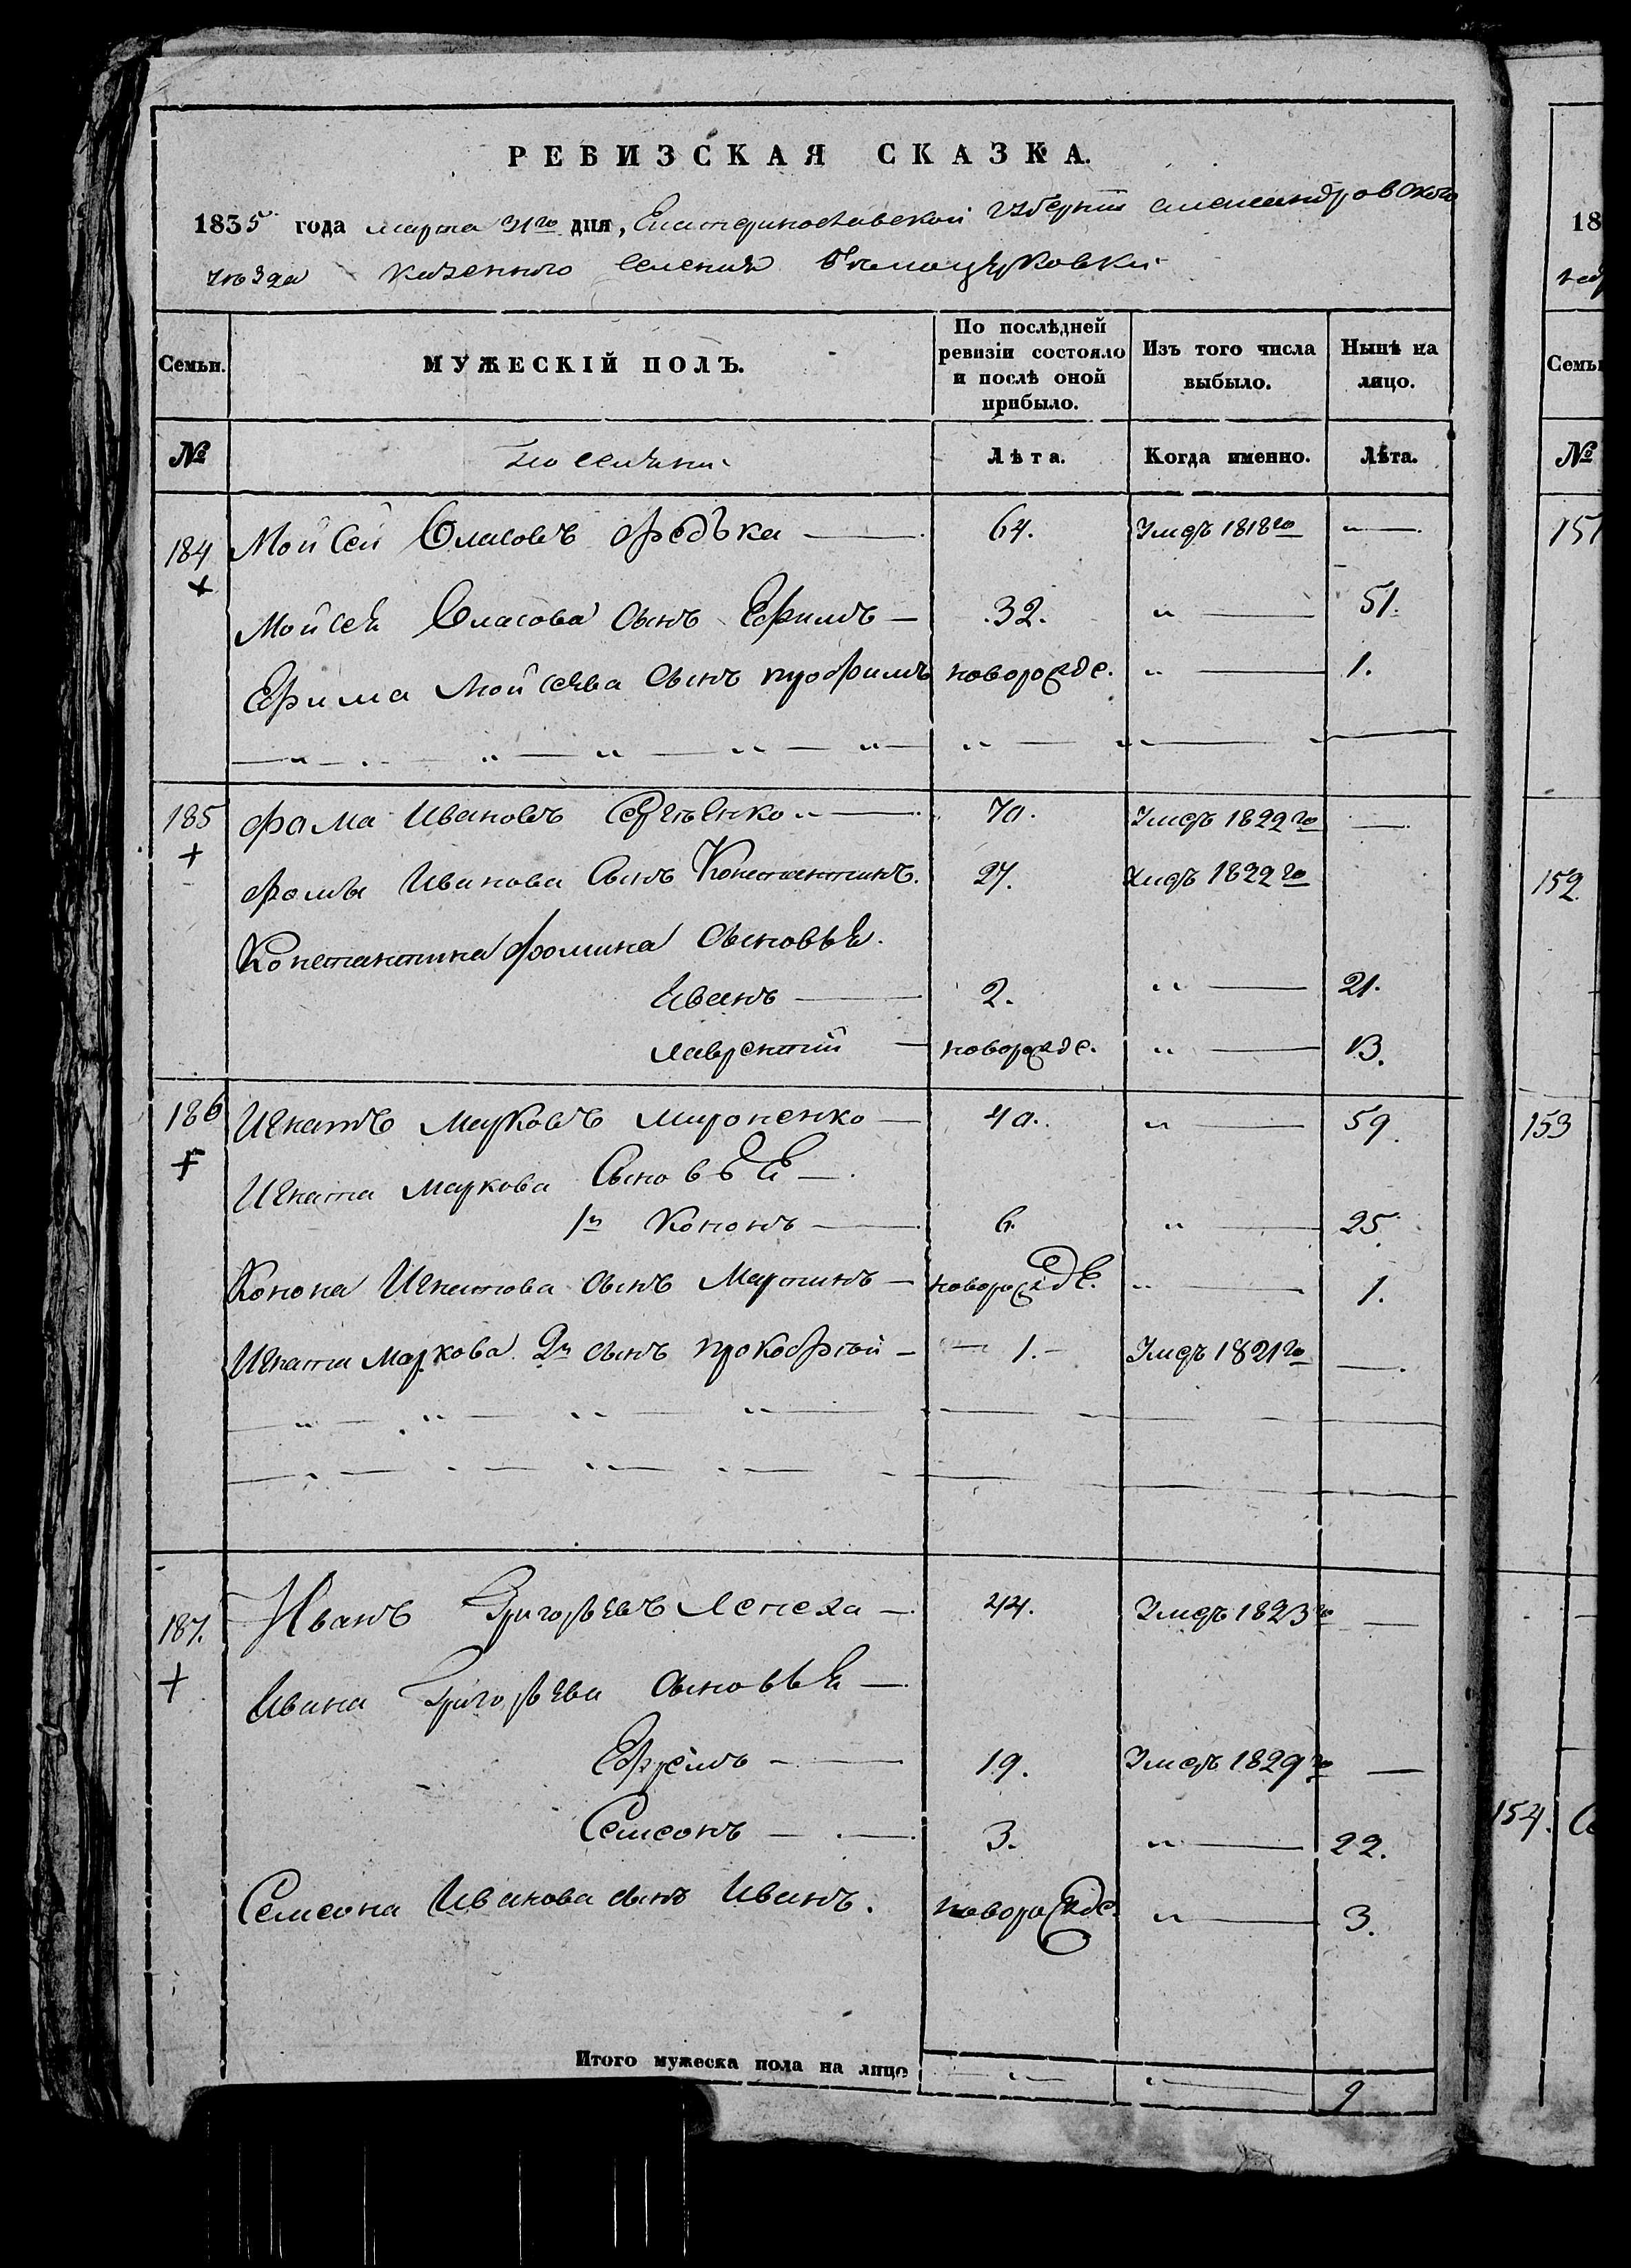 РЕВИЗСКАЯ СКАЗКА.
1835 года марта 31го дня, Екатеринославской губернии Александровскаго
уезда казенного селения Белоцерковки
Семьи. МУЖЕСКІЙ ПОЛЪ. По послѣдней ревизіи состояло и послѣ оной прибыло. Изъ того числа выбыло. Нынѣ на лицо.
№ поселяни Лѣта. Когда именно. Лѣта.
184 Мойсей Власовъ Федька 64. Умеръ 1818го
Мойсея Власова сынъ Ефимъ 32. " 51.
Ефима Мойсеева сынъ трофимъ новорожде. " 1.
185 Фома Ивановъ Сергѣенко 70. Умеръ 1822го
Фомы Иванова сынъ Константинъ. 27. Умеръ 1822го
Константина Фомина сыновья.
Иванъ 2. " 21.
Лаврентий новорожде. " 13.
186 Игнатъ Марковъ Мироненко 40. " 59.
Игната Маркова сыновья
1й Кононъ 6. " 25.
Конона Игнатова сынъ Мартинъ новорожде. " 1.
Игната Маркова 2й сынъ прокофий 1. Умеръ 1821го
187. Иванъ Григорьевъ Лепеха 44. Умеръ 1823го
Ивана Григорьева сыновья
Ефремъ 19. Умеръ 1829го
Семеонъ 3. " 22.
Семеона Иванова сынъ Иванъ. новорожде. " 3.
Итого мужеска пола на лицо 9
18
Семьи
№
151
152
153
154.